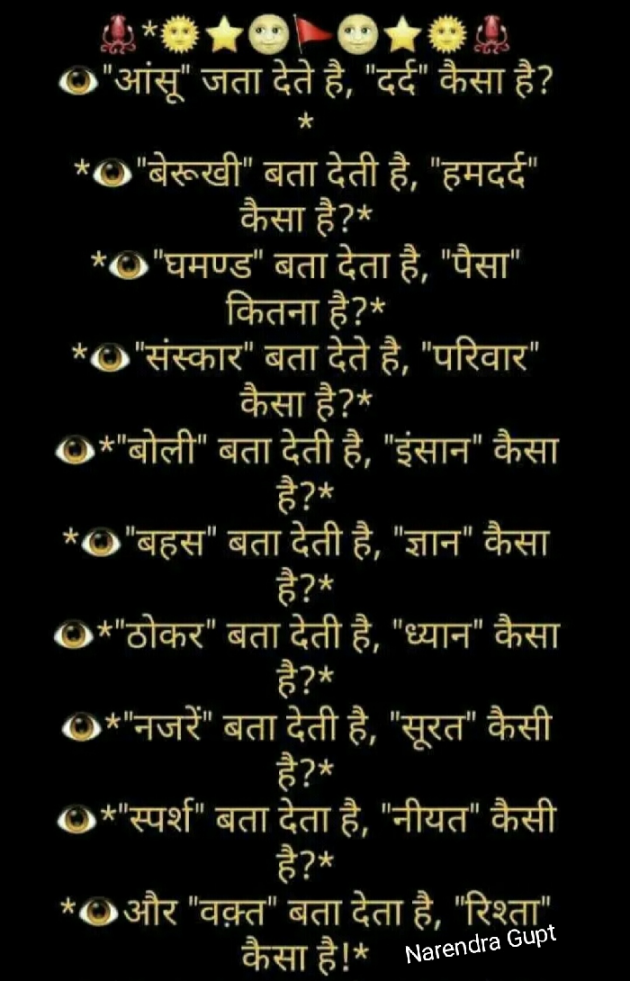 *
"आंसू" जता देते है, "दर्द" कैसा है?
*
*"बेरूखी" बता देती है, "हमदर्द"
कैसा है?*
*"घमण्ड" बता देता है, "पैसा"
कितना है?*
*"संस्कार" बता देते है, "परिवार"
कैसा है?*
*"बोली" बता देती है, "इंसान" कैसा
है?*
*"बहस" बता देती है, "ज्ञान" कैसा
है?*
*"ठोकर" बता देती है, "ध्यान" कैसा
है?*
*"नजरें" बता देती है, "सूरत" कैसी
है?*
*"स्पर्श" बता देता है, "नीयत" कैसी
है?*
*और "वक़्त" बता देता है, "रिश्ता"
कैसा है!*
Narendra Gupt